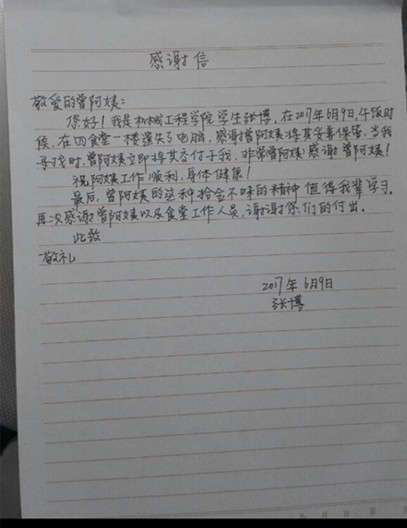 感谢信
敬爱的曾阿姨：
您好！我是机械工程学院学生张博，在2017年6月9日，午饭时
候，在四食堂一楼遗失了电脑，感谢曾阿姨将其妥善保管，当我
寻找时，曾阿姨立即将其交付予我，非常曾阿姨！感谢曾阿姨！
祝阿姨工作顺利，身体健康！
最后，曾阿姨的这种拾金不昧的精神值得我辈学习。
再次感谢曾阿姨以及食堂工作人员，谢谢你们的付出。
此致
敬礼
2017年6月9日
张博